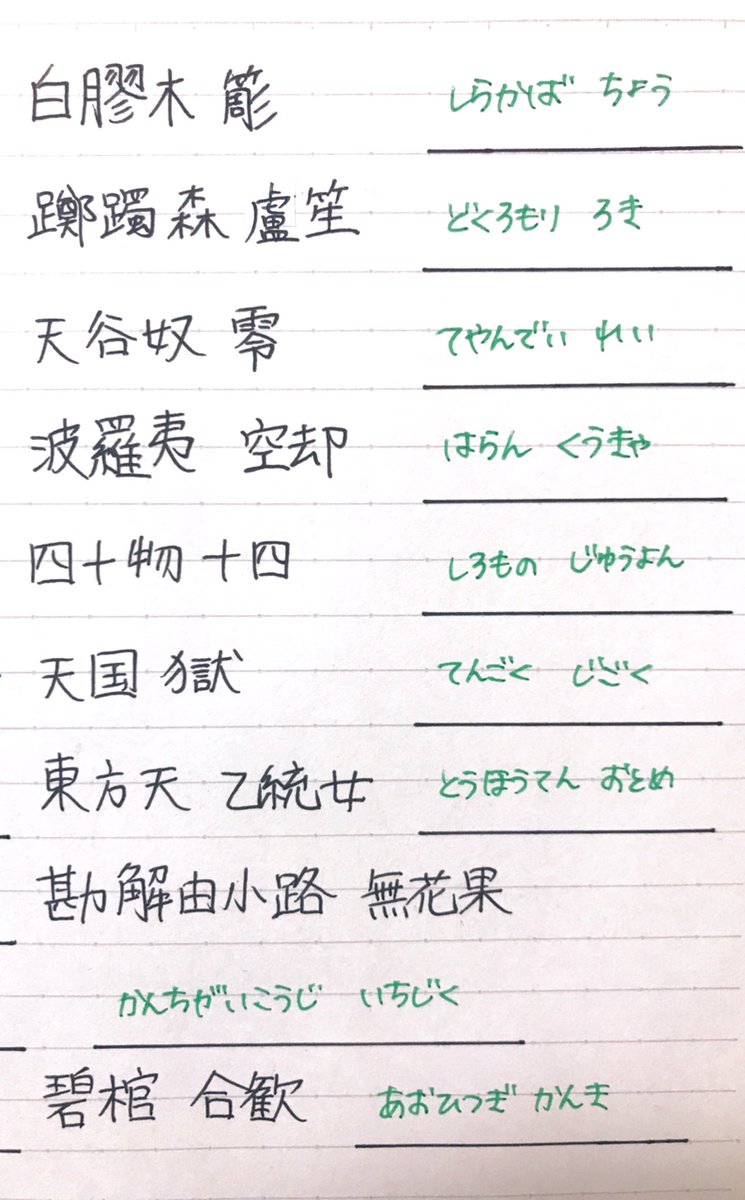 白膠木 簓 しらかば ちょう
躑躅森 盧笙 どくろもり ろき
天谷奴 零 てやんでい れい
波羅夷 空却 はらん くうきゃ
四十物 十四 しろもの じゅうよん
天国 獄 てんごく じごく
東方天 乙統女 とうほうてん おとめ
勘解由小路 無花果
かんちがいこうじ いちじく
碧棺 合歓 あおひつぎ かんき